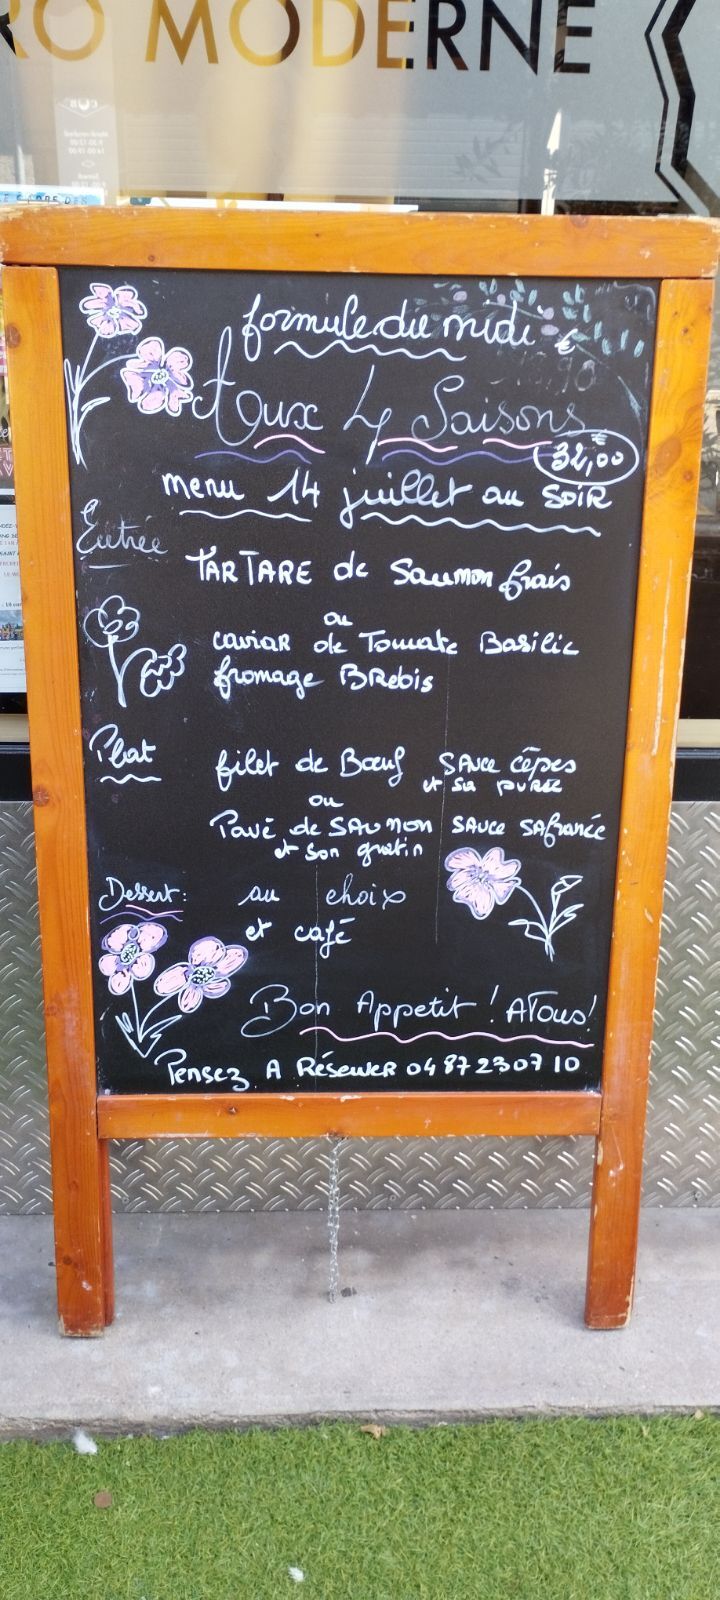 RO MODERNE
formule du midi €
Aux 4 Saisons
€
32,00
menu 14 juillet au SOIR
Entrée
TARTARE de Saumon frais
ou
caviar de Tomate Basilic
fromage BRebis
Plat
filet de Bœuf SAuce cèpes
et sa purée
ou
Pavé de SAUMON SAUCE SAfranée
et son gratin
Dessert: au choix
et café
Bon Appetit ! A Tous!
Pensez A RéseRveR 04 87 23 07 10